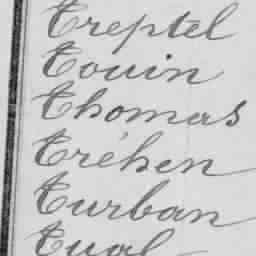 Treptel
Touin
Thomas
Tréhen
Turban
Tual